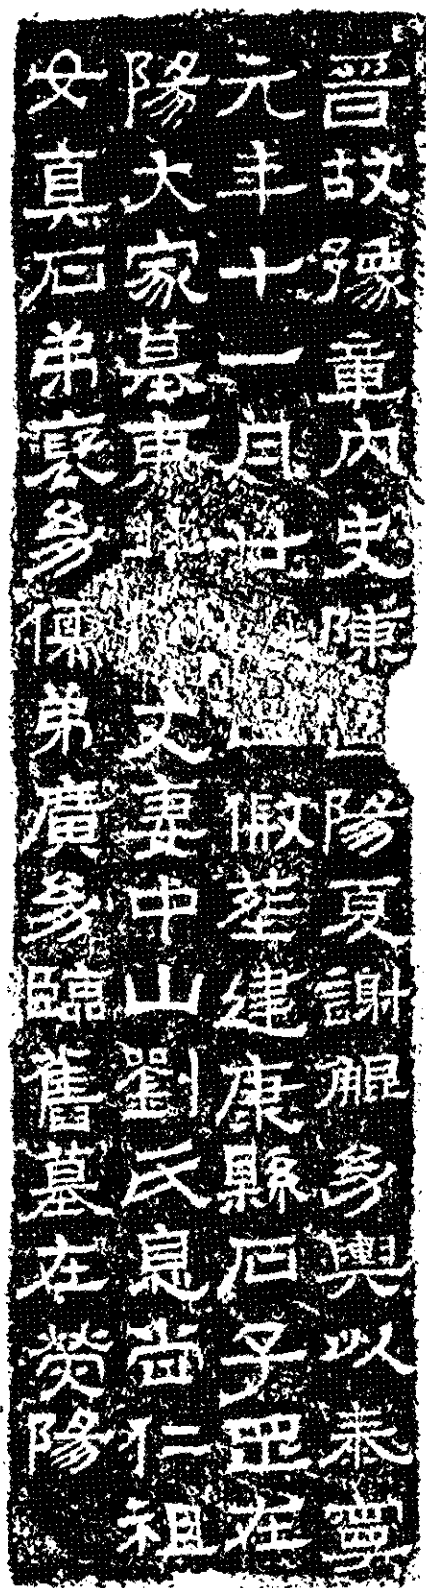 晉故豫章內史陳陽夏謝鯤幼輿以泰寧
元年十一月廿日假葬建康縣石子罡在
陽大家墓東北丈妻中山劉氏息尚仁祖
女真石弟裒幼儒弟廣幼臨舊墓在熒陽